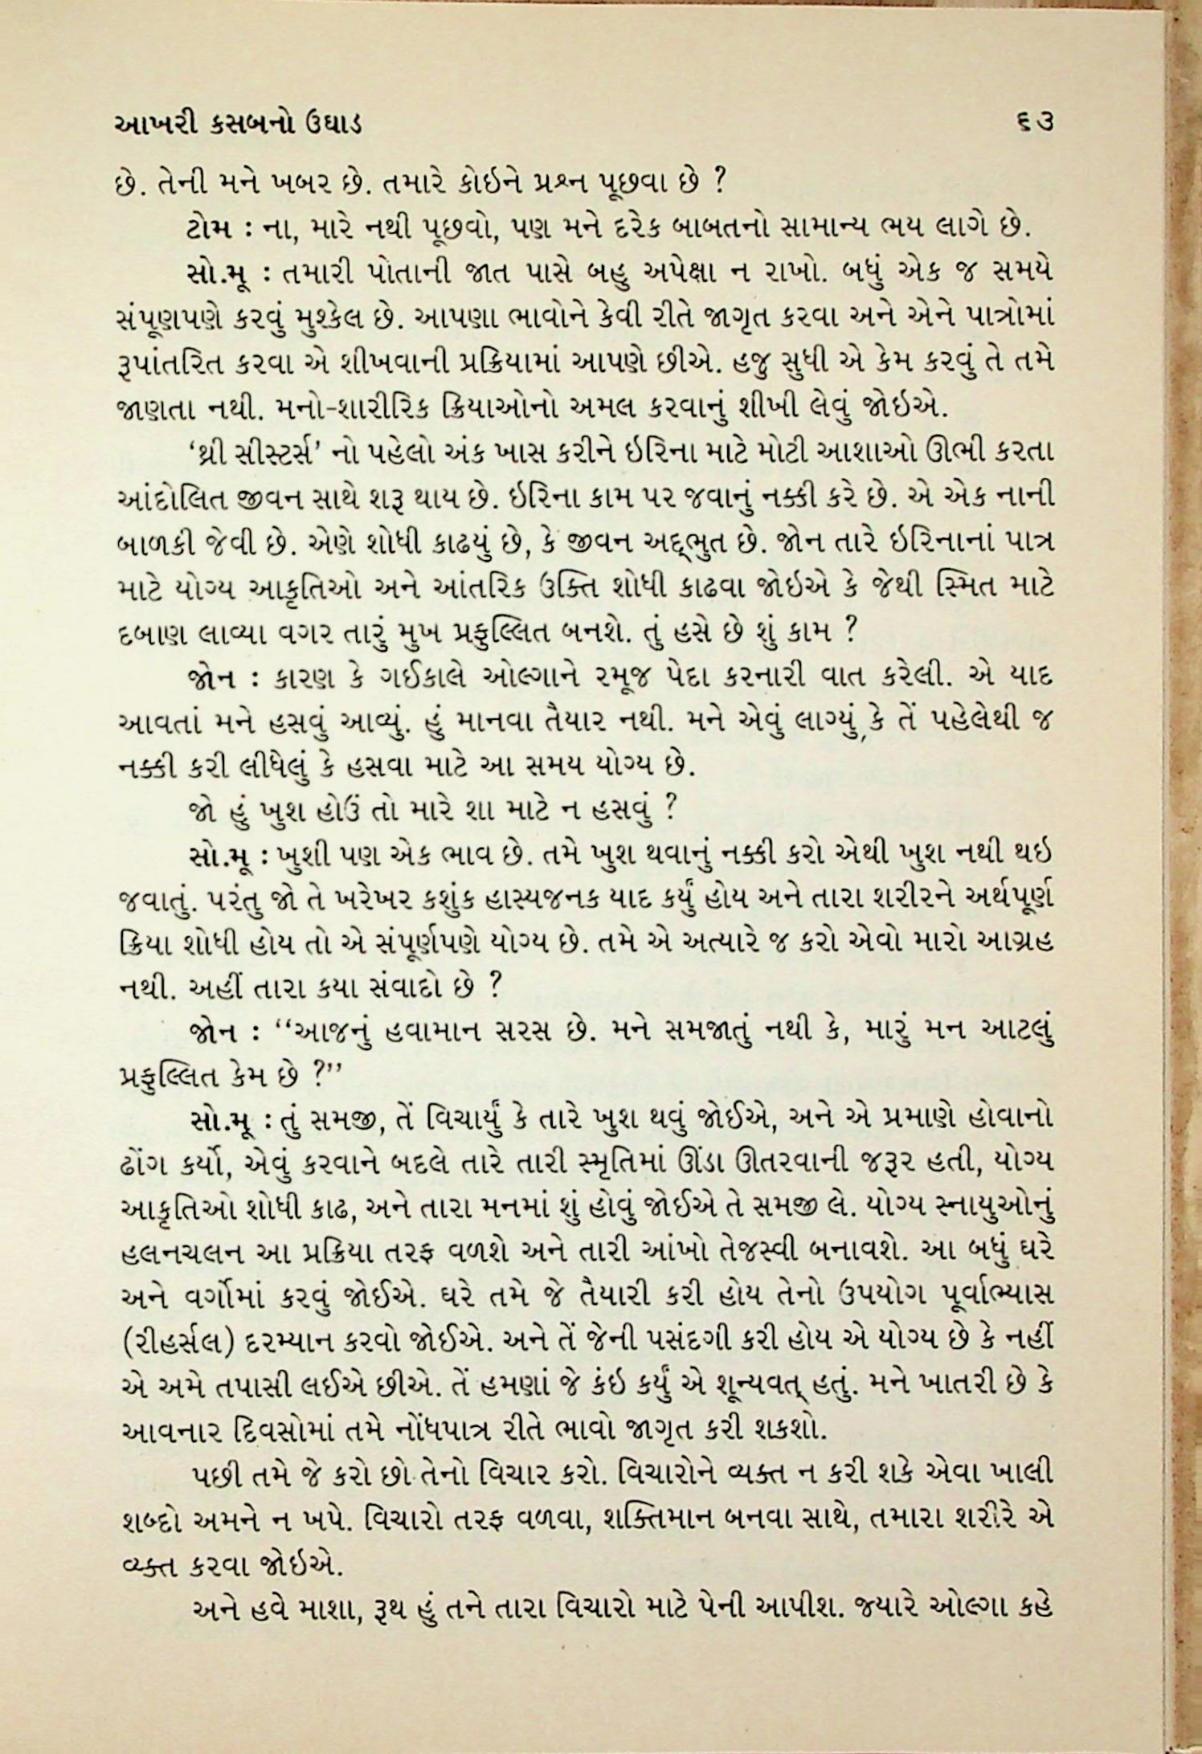 આખરી કસબનો ઉઘાડ ૬૩
છે. તેની મને ખબર છે. તમારે કોઇને પ્રશ્ન પૂછવા છે ?
ટોમ : ના, મારે નથી પૂછવો, પણ મને દરેક બાબતનો સામાન્ય ભય લાગે છે.
સો.મૂ : તમારી પોતાની જાત પાસે બહુ અપેક્ષા ન રાખો. બધું એક જ સમયે
સંપૂણપણે કરવું મુશ્કેલ છે. આપણા ભાવોને કેવી રીતે જાગૃત કરવા અને એને પાત્રોમાં
રૂપાંતરિત કરવા એ શીખવાની પ્રક્રિયામાં આપણે છીએ. હજુ સુધી એ કેમ કરવું તે તમે
જાણતા નથી. મનો-શારીરિક ક્રિયાઓનો અમલ કરવાનું શીખી લેવું જોઇએ.
‘થ્રી સીસ્ટર્સ’ નો પહેલો અંક ખાસ કરીને ઇરિના માટે મોટી આશાઓ ઊભી કરતા
આંદોલિત જીવન સાથે શરૂ થાય છે. ઇરિના કામ પર જવાનું નક્કી કરે છે. એ એક નાની
બાળકી જેવી છે. એણે શોધી કાઢયું છે, કે જીવન અદ્ભુત છે. જોન તારે ઇરિનાનાં પાત્ર
માટે યોગ્ય આકૃતિઓ અને આંતરિક ઉક્તિ શોધી કાઢવા જોઇએ કે જેથી સ્મિત માટે
દબાણ લાવ્યા વગર તારું મુખ પ્રફુલ્લિત બનશે. તું હસે છે શું કામ ?
જોન : કારણ કે ગઈકાલે ઓલ્ગાને રમૂજ પેદા કરનારી વાત કરેલી. એ યાદ
આવતાં મને હસવું આવ્યું. હું માનવા તૈયાર નથી. મને એવું લાગ્યું, કે તેં પહેલેથી જ
નક્કી કરી લીધેલું કે હસવા માટે આ સમય યોગ્ય છે.
જો હું ખુશ હોઉં તો મારે શા માટે ન હસવું ?
સો.મૂ : ખુશી પણ એક ભાવ છે. તમે ખુશ થવાનું નક્કી કરો એથી ખુશ નથી થઇ
જવાતું. પરંતુ જો તે ખરેખર કશુંક હાસ્યજનક યાદ કર્યું હોય અને તારા શરીરને અર્થપૂર્ણ
ક્રિયા શોધી હોય તો એ સંપૂર્ણપણે યોગ્ય છે. તમે એ અત્યારે જ કરો એવો મારો આગ્રહ
નથી. અહીં તારા કયા સંવાદો છે ?
જોન : “આજનું હવામાન સરસ છે. મને સમજાતું નથી કે, મારું મન આટલું
પ્રફુલ્લિત કેમ છે ?”
સો.મૂ : તું સમજી, તેં વિચાર્યું કે તારે ખુશ થવું જોઈએ, અને એ પ્રમાણે હોવાનો
ઢોંગ કર્યો, એવું કરવાને બદલે તારે તારી સ્મૃતિમાં ઊંડા ઊતરવાની જરૂર હતી, યોગ્ય
આકૃતિઓ શોધી કાઢ, અને તારા મનમાં શું હોવું જોઈએ તે સમજી લે. યોગ્ય સ્નાયુઓનું
હલનચલન આ પ્રક્રિયા તરફ વળશે અને તારી આંખો તેજસ્વી બનાવશે. આ બધું ઘરે
અને વર્ગોમાં કરવું જોઈએ. ઘરે તમે જે તૈયારી કરી હોય તેનો ઉપયોગ પૂર્વાભ્યાસ
(રીહર્સલ) દરમ્યાન કરવો જોઈએ. અને તેં જેની પસંદગી કરી હોય એ યોગ્ય છે કે નહીં
એ અમે તપાસી લઈએ છીએ. તેં હમણાં જે કંઇ કર્યું એ શૂન્યવત્ હતું. મને ખાતરી છે કે
આવનાર દિવસોમાં તમે નોંધપાત્ર રીતે ભાવો જાગૃત કરી શકશો.
પછી તમે જે કરો છો તેનો વિચાર કરો. વિચારોને વ્યક્ત ન કરી શકે એવા ખાલી
શબ્દો અમને ન ખપે. વિચારો તરફ વળવા, શક્તિમાન બનવા સાથે, તમારા શરીરે એ
વ્યક્ત કરવા જોઇએ.
અને હવે માશા, રૂથ હું તને તારા વિચારો માટે પેની આપીશ. જયારે ઓલ્ગા કહે